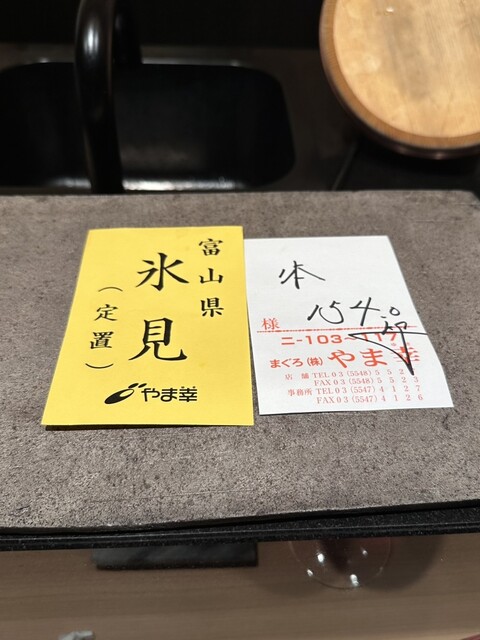 富山県
氷見
(定置)
やま幸
本
154.0
様
ニ-103-117
まぐろ(株)やま幸
店舗 TEL03(5548)5525
FAX03(5548)5523
事務所 TEL03(5547)4127
FAX03(5547)4126